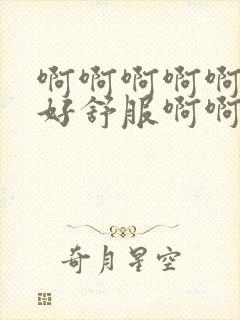 啊啊啊啊啊
好舒服啊啊
奇月星空